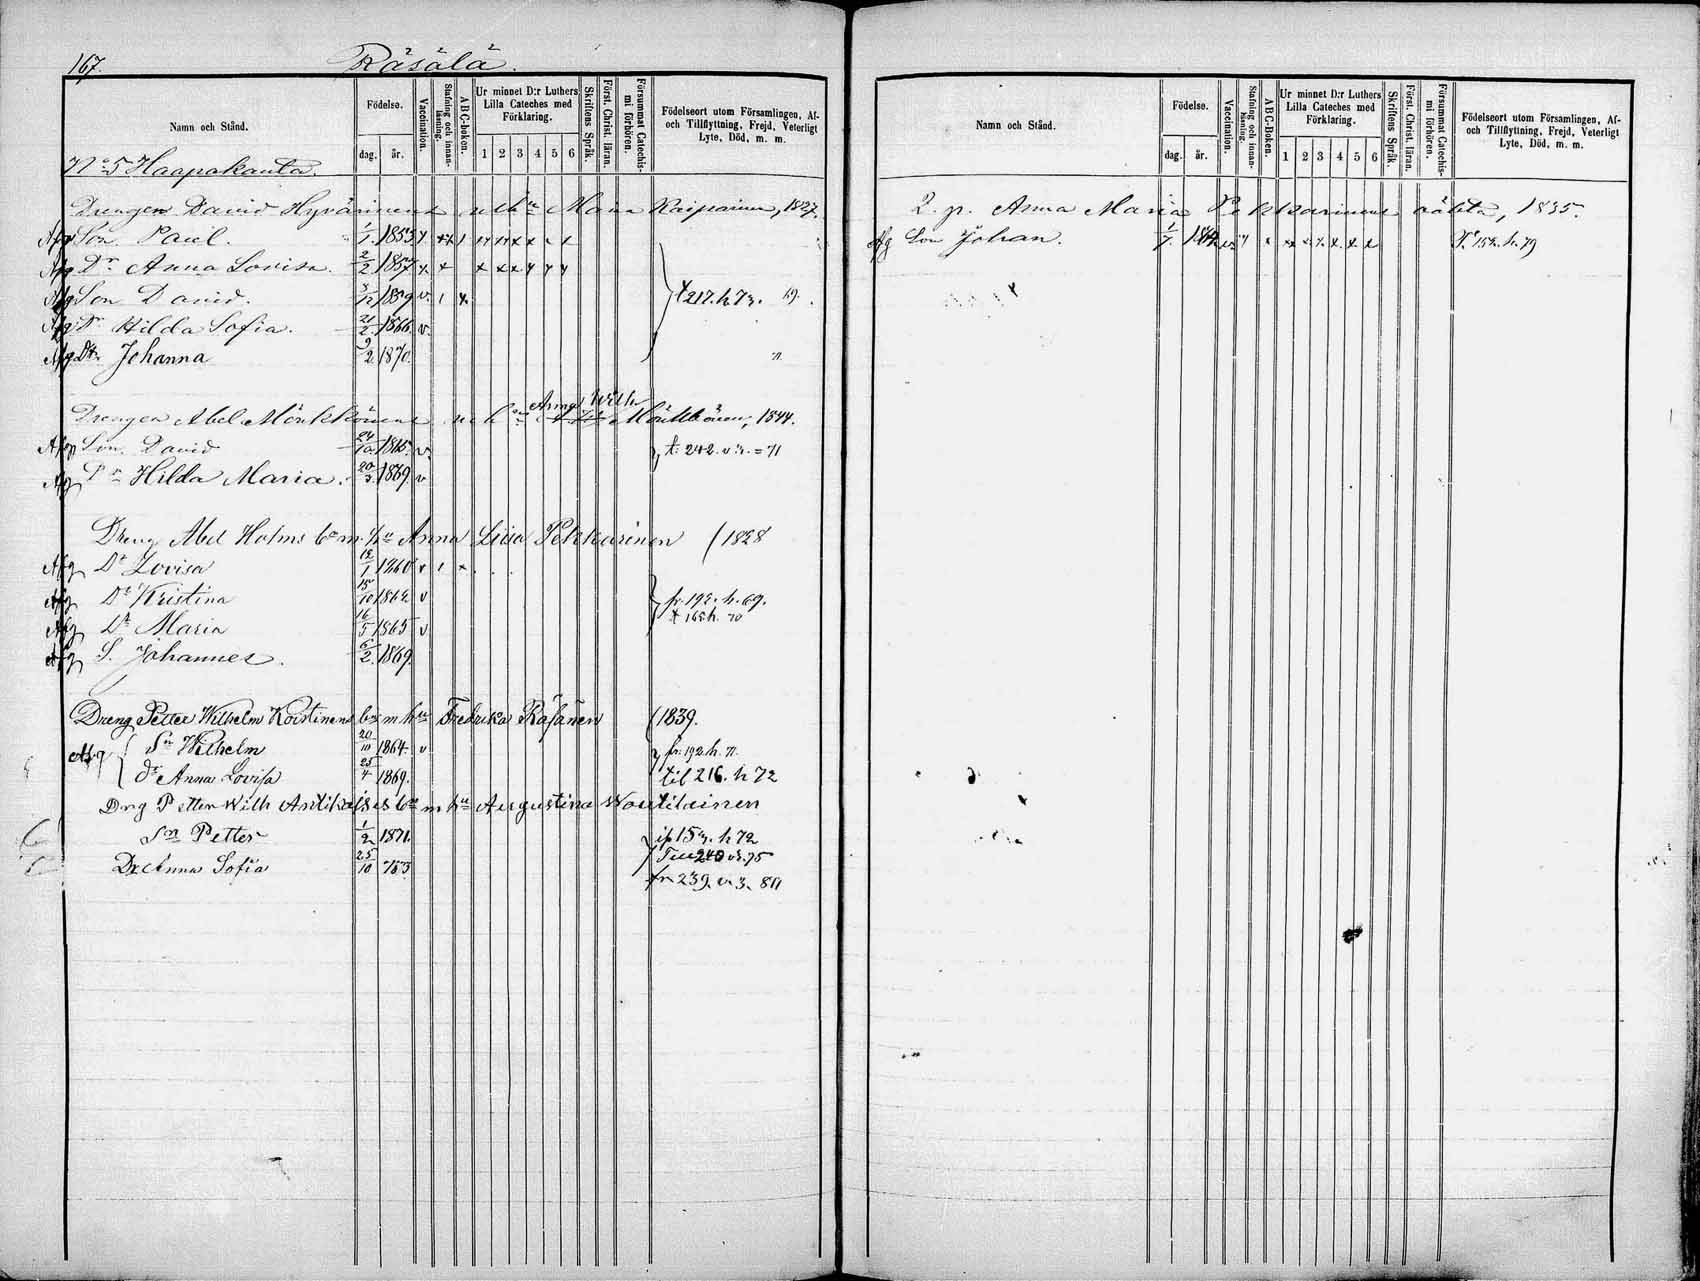 167. Räsälä.
Namn och Stånd.
Födelse.
dag. år.
Vaccination.
Stafning och innan-läsning.
A B C-boken.
Ur minnet D:r Luthers Lilla Cateches med Förklaring.
1 2 3 4 5 6
Skriftens Språk.
Först. Christ. läran.
Försummat Catechismi förhören.
Födelseort utom Församlingen, Af- och Tillflyttning, Frejd, Veterligt Lyte, Död, m. m.
No 5 Haapakanta.
Drengen David Hyvärinens Maria Kaipainen, 1827.
Afg Son Paul. 1/1 1853
Afg Dr Anna Lovisa. 2/2 1857
Afg Son David. 3/12 1859 v. t 217. h 73.
Afg Dr Hilda Sofia. 21/2 1866. v.
Afg Dtr Johanna 9/2 1870.
Drengen Abel Mönkkönens Anna Wilh Mönkkönen, 1844.
Afg Son David 24/10 1865. v t. 242. v. 3. = 71
Afg Dr Hilda Maria. 20/3 1869. v
Dreng Abel Holms bn m. hu Anna Liisa Pekkarinen / 1828
Afg Dr Lovisa 12/1 1860
Afg Dr Kristina 15/10 1862 v fr. 192. h. 69.
Afg Dr Maria 16/5 1865 v t 165 h. 70
Afg S. Johannes. 6/2 1869.
Dreng Petter Wilhelm Koistinens bn m hu Fredrika Räsänen (1839.
Afg Sn Wilhelm 20/10 1864 v fr. 192 h. 71.
dr Anna Lovisa 25/4 1869. til 216. h 72
Drg Petter Wilh Antikaises bn m hu Augustina Woutilainen
Sn Petter 1/2 1871. ifr 153. h 72
Till 240 v3. 75
Dr Anna Sofia 25/10 753 fr 239. v 3. 80
Namn och Stånd.
Födelse.
dag. år.
Vaccination.
Stafning och innan-läsning.
A B C-Boken.
Ur minnet D:r Luthers Lilla Cateches med Förklaring.
1 2 3 4 5 6
Skriftens Språk.
Först. Christ. läran.
Försummat Catechismi förhören.
Födelseort utom Församlingen, Af- och Tillflyttning, Frejd, Veterligt Lyte, Död, m. m.
2. p. Anna Maria Pekkarinens oäkta, 1835.
Afg Son Johan. 1/7 1864 T. 152. h. 79